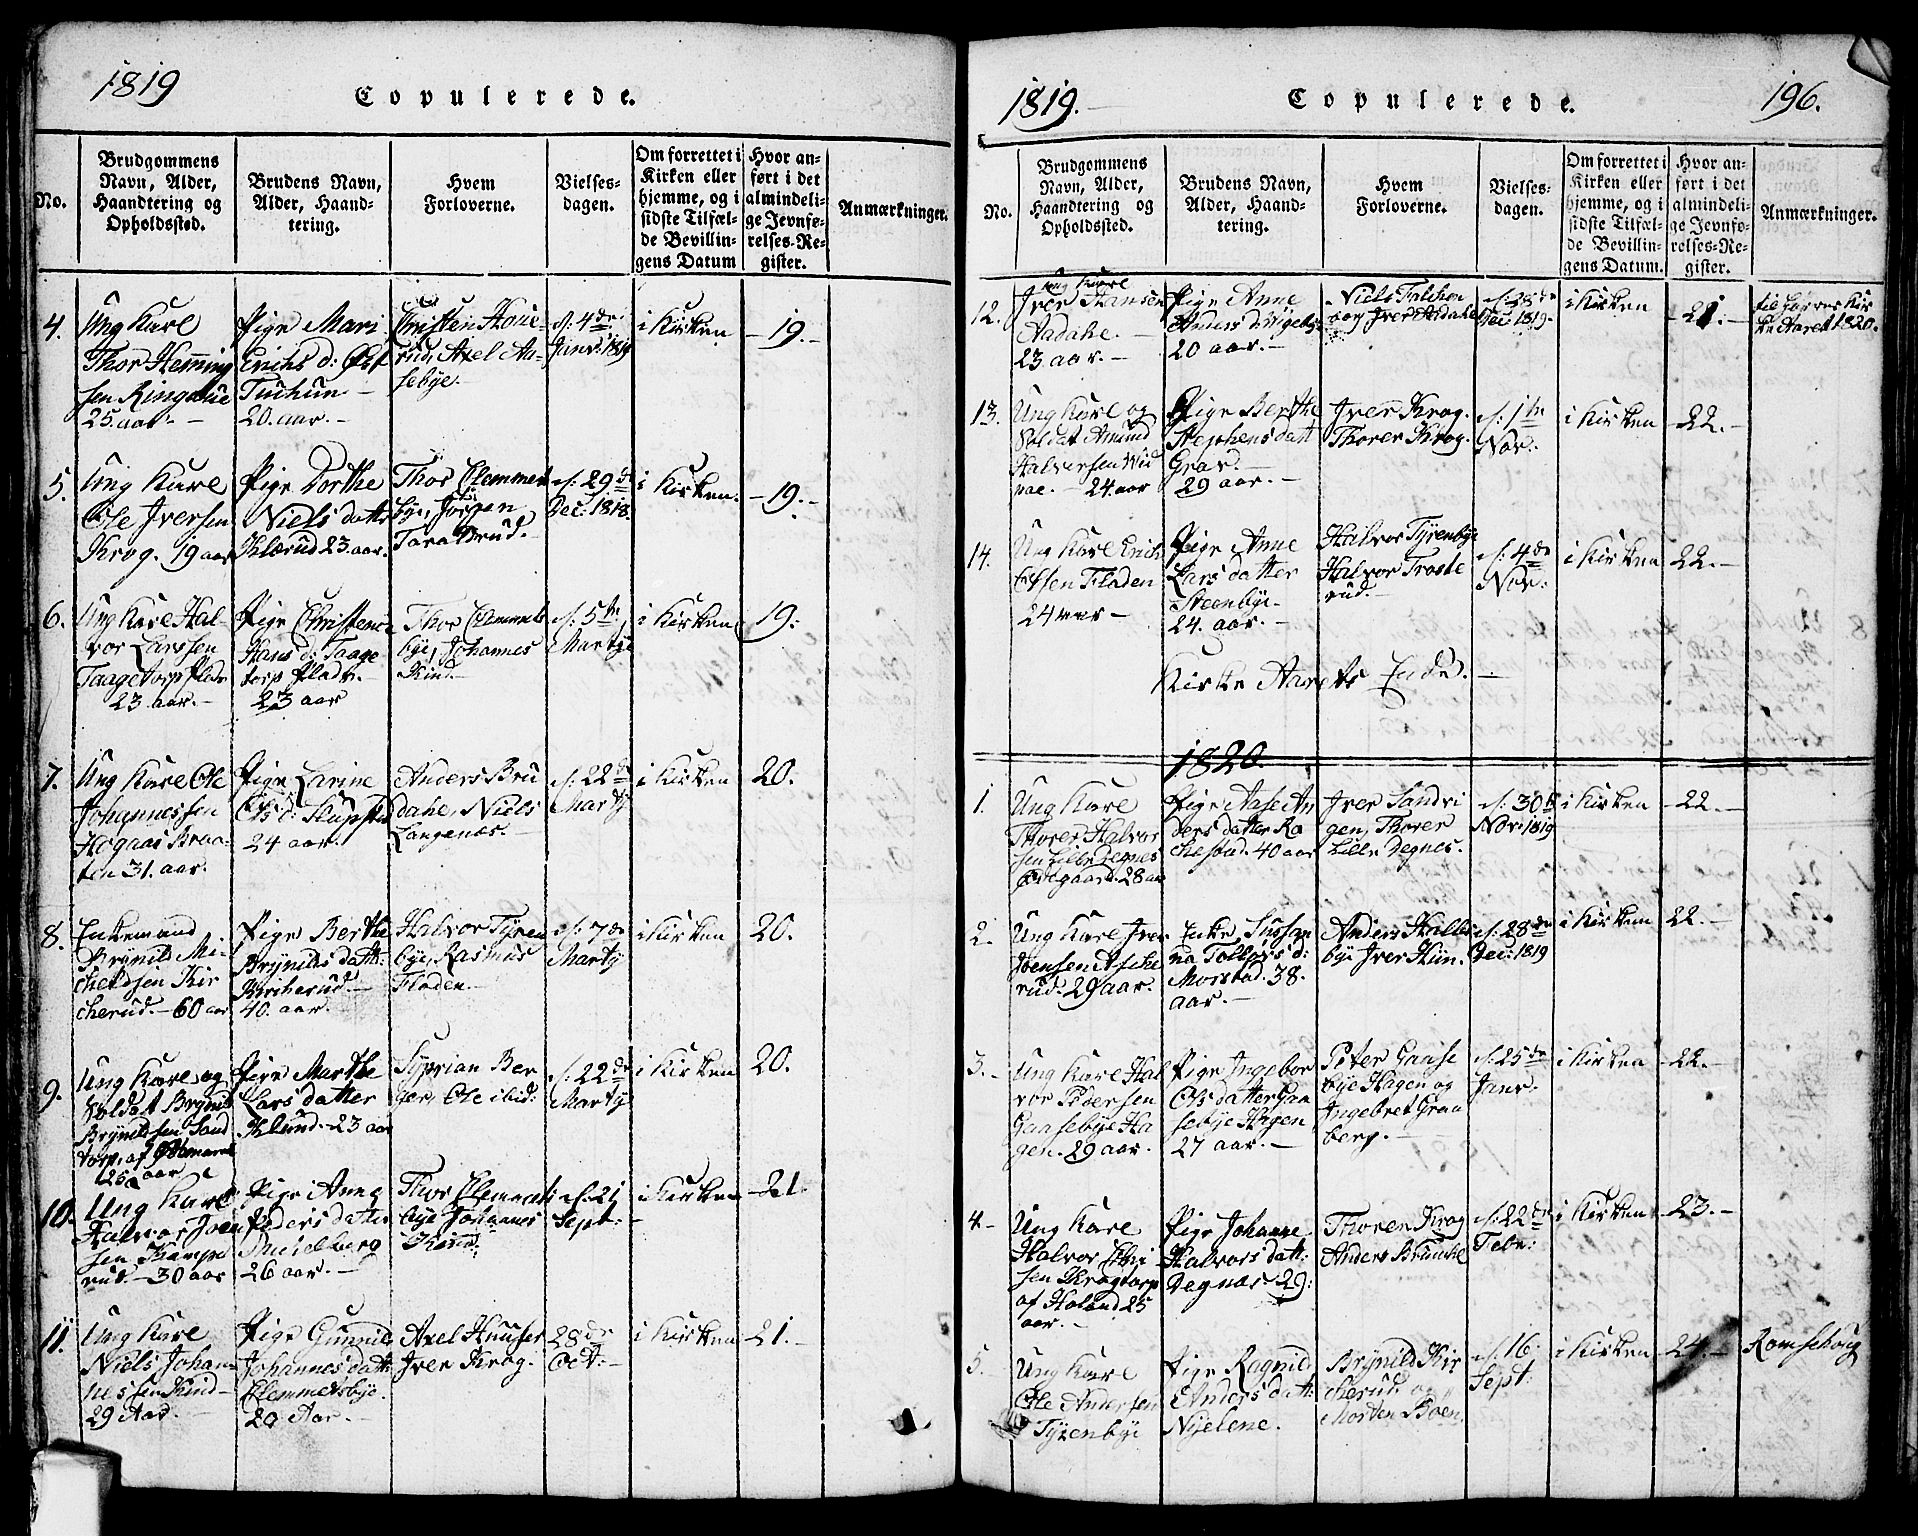 1819
Copulerede.
No.
Brudgommens
Navn, Alder,
Haandtering og
Opholdssted.
Brudens Navn,
Alder, Haand-
tering.
Hvem
Forloverne.
Vielses-
dagen.
Om forrettet i
Kirken eller
hjemme, og i
sidste Tilfæl-
de Bevillin-
gens Datum
Hvor an-
ført i det
almindeli-
ge Jevnfø-
relses-Re-
gister.
Anmærkninger.
4.
Ung Karl
Thor Hemming
sen Ringsbue
25. aar. -
Pige Mari
Erichs d: Øst
Tuchun -
20. aar. -
Christen Houe-
rud, Axel An-
sebye.
d. 4de
Janr: 1819
i Kirken
- 19. -
5.
Ung Karl
Ole Iversen
Krog. 19 aar
Pige Dorthe
Niels datter
Klærud 23. aar.
Thor Clemmets
bye, Jørgen
Taraldrud.
d. 29de
Dec: 1818.
i Kirken.
- 19. -
6.
Ung Karl Hal-
vor Larssen
Taagetorp Plads
23. aar. -
Pige Christence
Hans d: Taage
torp Plads. -
23 aar
Thor Clemmets
bye, Johannes
Kind
d. 5te
Martij
i Kirken
19:
7.
Ung Karl Ole
Johannessen
Hogaas Braa-
ten 31. aar.
Pige Larine
Ols d:
24 aar.
Anders Bru
dahl, Niels
Langenæs. -
d. 22de
Martij
i Kirken
20.
8.
Enkemand
Brynild Mi-
chelsen Kir
cherud. - 60 aar
Pige Berthe
Brynilds datt:
Kircherud. -
40. aar.
Halvor Tyren
bye, Rasmus
Floden. -
d. 7de
Martij
i Kirken
20.
9.
Ung Karl og
Soldat Brynild
Brynildsen Sand
torp, af
26 aar
Pige Marthe
Lars datter
Klund. - 23 aar
Syprian Ber
ger, Ole ibid:
d. 22de
Martij
i Kirken
20.
10.
Ung Karl
Halvor Joen
sen Kamp
rud - 30 aar
Pige Anne
Peders datter
26 aar. -
Thor Clemmets
bye Johannes
Kind.
d. 21
Sept: -
i Kirken
- 21.
11.
Ung Karl
Niels Johan-
nessen Kind -
29 Aar. -
Pige Gunnild
Johannes datt:
Clemmetsbye.
20 Aar. -
Axel Huuser
Iver Krog.
28de
Oct: -
i Kirken
21. -
1819. -
Copulerede.
196.
No.
Brudgommens
Navn, Alder,
Haandtering og
Opholdssted.
Brudens Navn,
Alder, Haand-
tering.
Hvem
Forloverne.
Vielses-
dagen.
Om forrettet i
Kirken eller
hjemme, og i
sidste Tilfæl-
de Bevillin-
gens Datum.
Hvor an-
ført i det
almindeli-
ge Jevnfø-
relses-Re-
gister.
Anmærkninger.
12.
Ung Karl
Iver Hansen
Aadahl. -
23 aar. -
Pige Anne
Anders d: Vigebye
20 aar. -
Niels Falchen
og Iver Aadahl
d. 28de
Dec: 1819.
i Kirken
- 21. -
tilhører Kir
ke Aaret 1820.
13.
Ung Karl og
Soldat Amund
Halversen Wud
pae. - 24. aar
Pige Berthe
Stephens datt
Grav. -
29 aar. -
Iver Krog.
Thorer Krog.
d. 1te
Nov:
i Kirken
- 22. -
14.
Ung Karl Erich
Olssen Floden
24 aar -
Pige Anne
Lars datter
Steenbye. -
24. aar. -
Halvor Tyrenbye
Halvor Troste
rud. -
d. 4de
Nov:
i Kirken
- 22. -
Kirke Aarets Ende. -
1820.
1.
Ung Karl
Thorer Halvor
sen Lille Degnes
Ødegaard. 28 aar
Pige Aase An
ders datter Ra
chestad. 40 aar
Iver Sandvi
gen, Thorer
Lille Degnes.
d. 30te
Nov: 1819
i Kirken
- 22. -
2.
Ung Karl Iver
Joensen Asche
rud. 29 aar. -
Enke Susan
na Tollevs d:
Morstad. 38.
aar. -
Anders Halle
bye Iver Hün.
d. 28de
Dec: 1819
i Kirken
22. -
3. -
Ung Karl Hal
vor Pedersen
Gaasebye Ha
gen. 29 aar.
Pige Ingebor
Ols datter Gaa
sebye Hagen
27 aar. -
Peter Gaase
bye Hagen og
Ingebret Graa
berg. -
d. 25de
Janr:
i Kirken
- 22. -
4. -
Ung Karl
Halvor Chri
sen Krogtorp
af Høland 25
aar. -
Pige Johanne
Halvors datt:
Degnæs 29:
Thorer Krog
Anders Brunche
d. 22de
Febr:
i Kirken
- 23. -
5.
Ung Karl
Ole Andersen
Tyrenbye
Pige Ragnild
Anders datt:
Nyelene.
Brynild Kir
cherud. og
Morten Böen,
d. 16
Sept:
i Kirken
- 24. -
Romsehoug